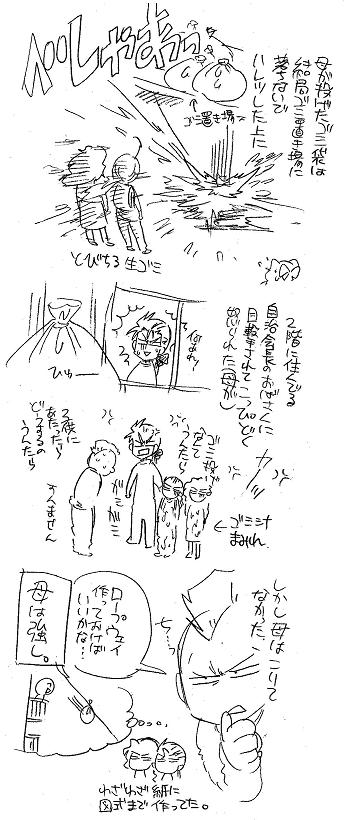 母が投げたゴミ袋は
結局ゴミ置き場に
落ちないで
ハレツした上に
べべしゃあっ
↑
ゴミ置き場
とびちる生ゴミ
2階に住んでる
自治会長のおばさんに
目撃されてこっぴどく
怒られた(母が)
なぁわ!
ひゅー
ガーッ
ゴミ投げ
なんて
うんたら
ガミガミ
2歳に
あたったら
どうするの
うんたら
すんません
←ゴミ汁
まみれ
しかし母はこりて
なかった、
チッ…
ロープウェイ
作っておけば
いいかな…
母は強し。
わざわざ紙に
図式まで作ってた。